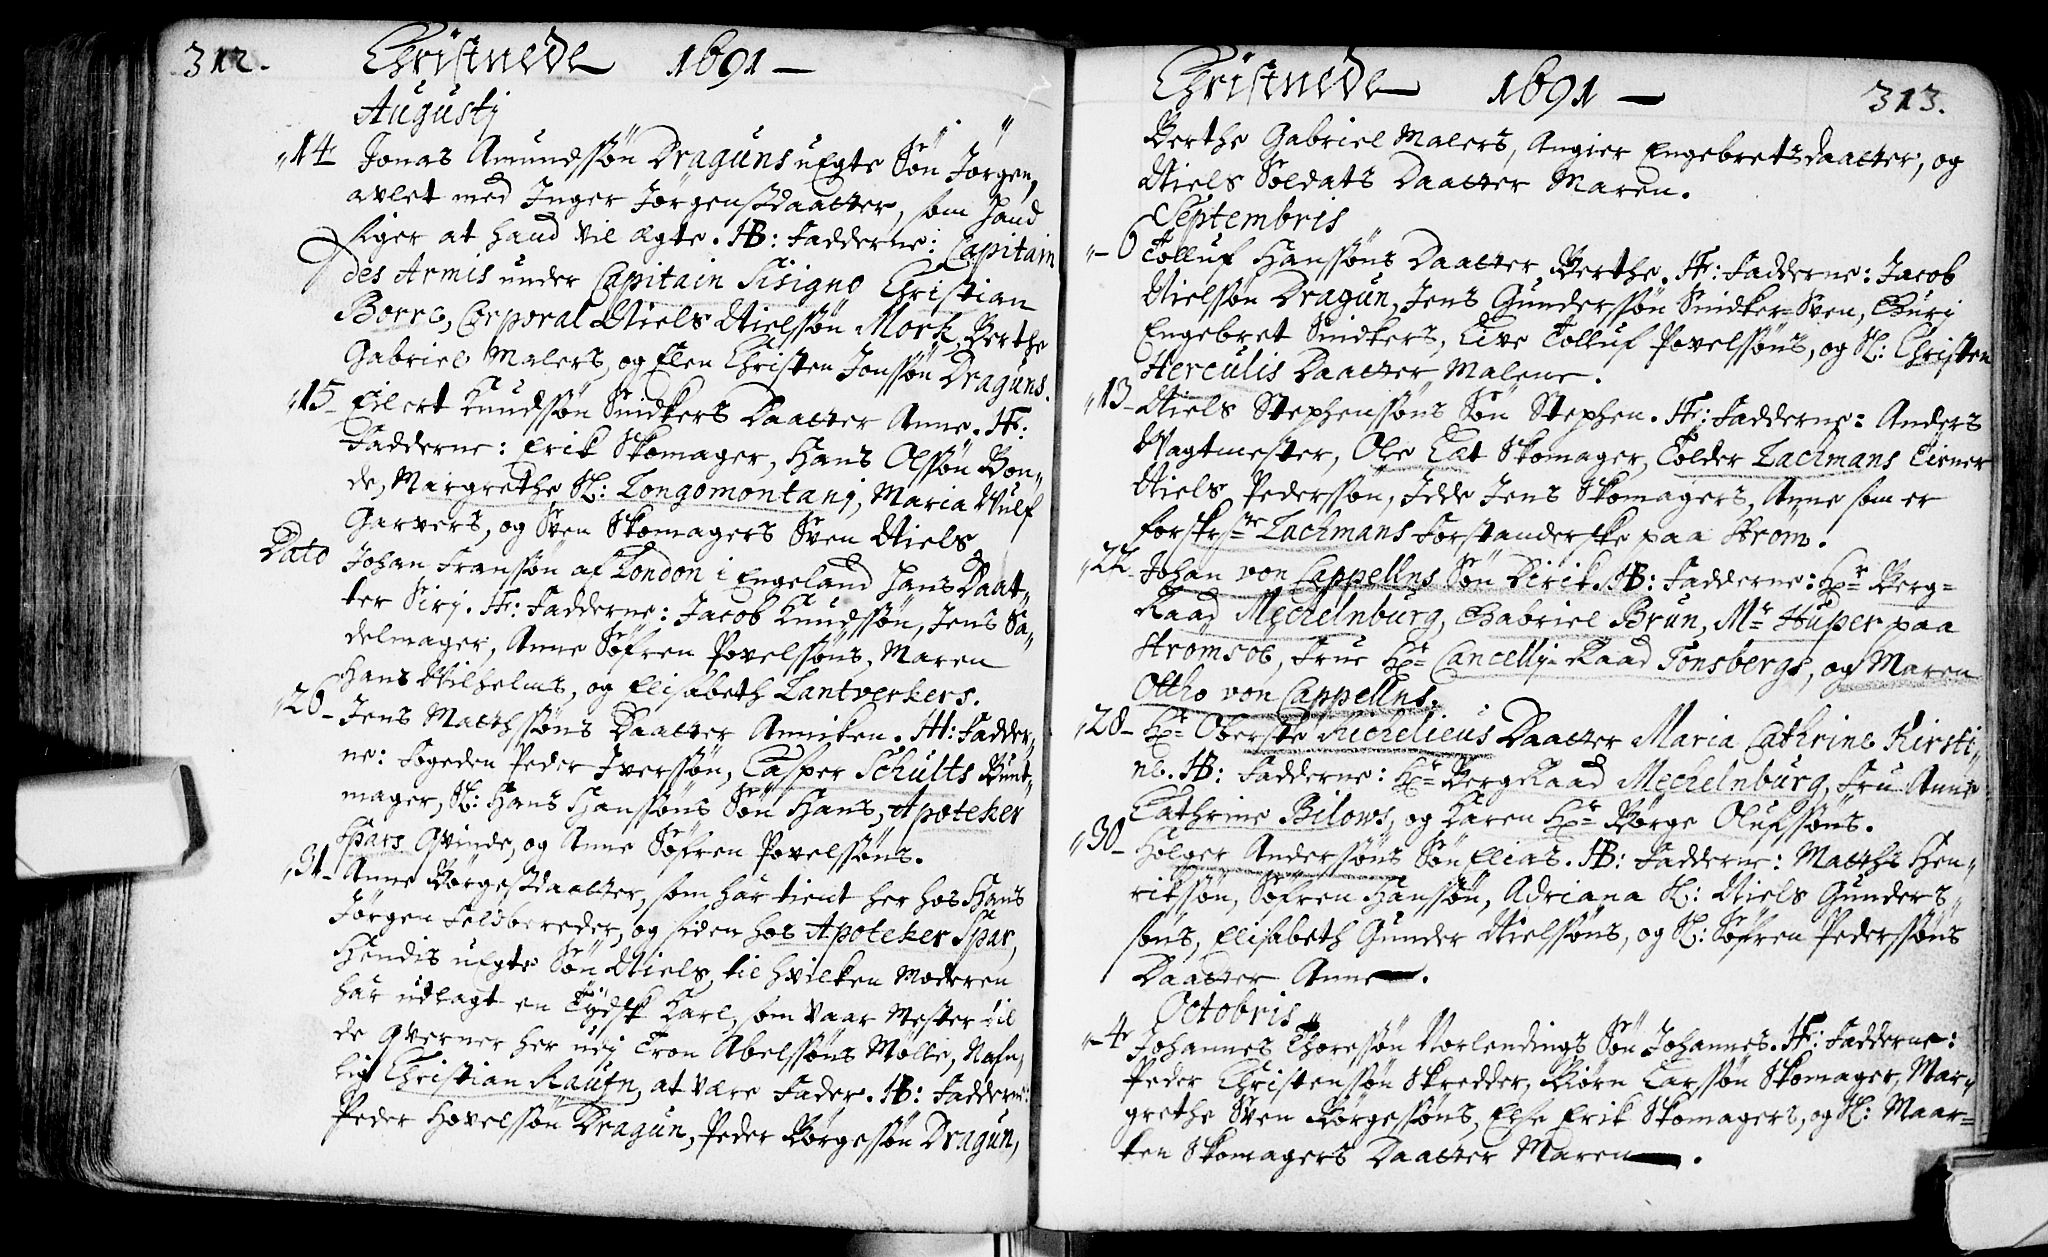 312.
Christnede 1691
Augustj
14 Jonas Amundssøn Draguns uEgte Søn Jørgen,
avlet med Inger Jørgenssdaatter, som hand
siger at hand vil ægte. HB: Fadderne: Capitain
des Armis under Capitain Sisigno Christian
Borre, Corporal Niels Nielssøn Mork, Berthe
Gabriel Malers, og Elen Christen Jonssøn Draguns.
15 Eilert Knudssøn Snidkers Daatter Anne. Hf:
Fadderne: Erik Skomager, Hans Olssøn Bon,,
de, Margrethe Sl: Longomontanj, Maria Wulf
Garvers, og Sven Skomagers Sven Niels
Dato Johan Franssøn af London i Engeland hans Daat,,
ter Sirj. Hf: Fadderne: Jacob Knudssøn, Jens Sa,,
delmager, Anne Søfren Povelssøns, Maren
Hans Wilhelms, og Elisabeth Lantverkers.
26 Jens Matthssøns Daatter Anniken. Hf: Fadder,,
ne: Fogeden Peder Iverssøn, Casper Schults Bunt,,
mager, Sl: Hans Hanssøns Søn Hans, Apoteker
Spars Qvinde, og Anne Søfren Povelssøns.
31 Anne Børgessdaatter, som har tient her hos Hans
Jørgen Feldbereder, og siden hos Apoteker Spar,
Hendis uEgte Søn Niels, til hvilken Moderen
har udlagt en Tydsk Karl, som vaar Mester til
de Qverner her udj Tron Abelssøns Mølle, Nafn,,
lig Christian Raufn, at være Fader. HB: Fadderne:
Peder Hovelssøn Dragun, Peder Børgessøn Dragun,
Christnede 1691
313.
Berthe Gabriel Malers, Angier Engebretsdaatter, og
Niels Soldats Daatter Maren.
Septembris
6 Tolluf Hanssøns Daatter Berthe. Hf: Fadderne: Jacob
Nielssøn Dragun, Jens Gunderssøn Snidker-Sven, Guri
Engebret Snidkers, Live Tolluf Povelssøns, og Sl: Christen
Herculis Daatter Malene.
13 Niels Stephenssøns Søn Stephen. Hf: Fadderne: Anders
Wagtmester, Ole Lat Skomager, Tolder Lachmans Tiener
Niels Pederssøn, Idde Jens Skomagers, Anne som er
forskrne Lachmans Forstanderske paa Strøm.
22 Johan von Cappellns Søn Dirik. HB: Fadderne: Hr Berg=
Raad Mechelnburg, Gabriel Brun, Mr Huper paa
Strømsøe, Frue Hr Cancellj-Raad Tonsbergs, og Maren
Ottho von Cappellns.
28 Hr Oberste Richelieus Daatter Maria Cathrine Kirsti,,
ne. HB: Fadderne: Hr BergRaad Mechelnburg, Fru Anne
Cathrine Bilows, og Karen Hr Børge Olufssøns.
30 Holger Anderssøns Søn Elias. HB: Fadderne: Matths Hen,,
rikssøn, Søfren Hanssøn, Adriana Sl: Niels Gunders,,
søns, Elisabeth Gunder Nielssøns, og Sl: Søfren Pederssøns
Daatter Anne.
Octobris
4 Johannes Thoressøn Norlendings Søn Johannes. Hf: Fadderne:
Peder Christenssøn Skredder, Biørn Larssøn Skomager, Mar,,
grethe Sven Børgessøns, Else Erik Skomagers, og Sl: Maar=
ten Skomagers Daatter Maren.